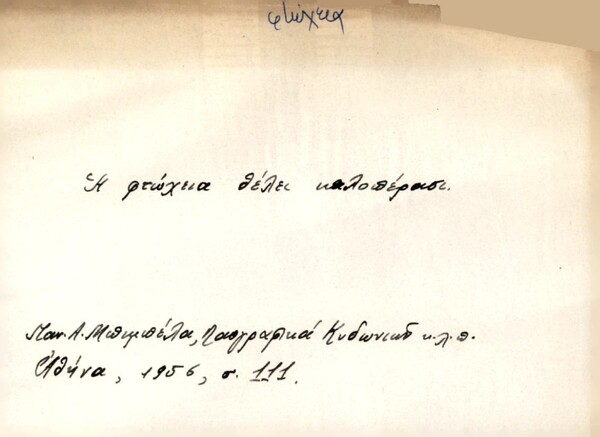 φτώχεια
Η φτώχεια θέλει καλοπέραση.
Παν. Α. Μπιμπέλα, Λαογραφικά Κυδωνιών κ.λ.π.
Αθήνα, 1956, σ. 111.